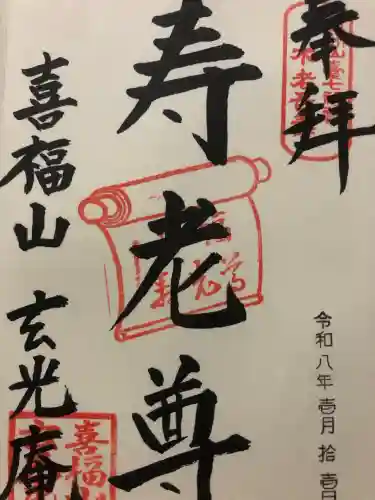 奉拝
寿老尊
喜福山 玄光庵
令和八年壱月拾壱日
喜福山